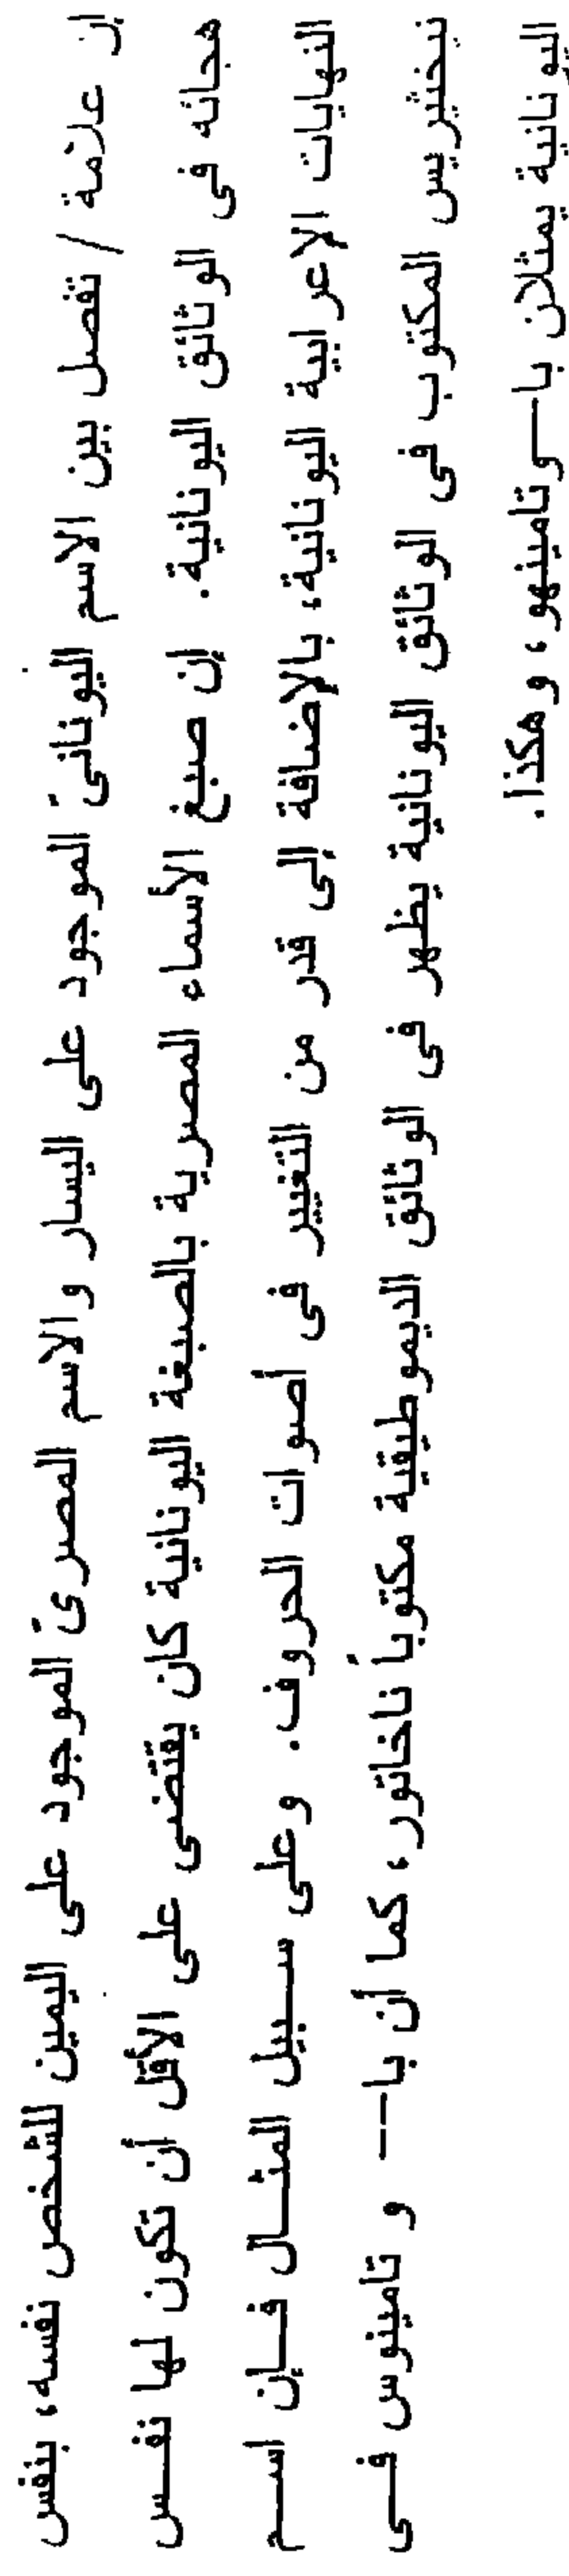 إن علامة / تفصل بين الاسم اليونانىّ الموجود على اليسار والاسم المصرىّ الموجود على اليمين للشخص نفسه، بنفس
هجائه فى الوثائق اليونانية. إن صبغ الأسماء المصرية بالصبغة اليونانية كان يقتضى على الأقل أن تكون لها نفس
النهايات الإعرابية اليونانية، بالإضافة إلى قدر من التغيير فى أصوات الحروف. وعلى سبيل المثال فإن اسم
نيخثيريس المكتوب فى الوثائق اليونانية يظهر فى الوثائق الديموطيقية مكتوباً ناخاتور، كما أن با-- و تامينوس فى
اليونانية يمثلان با— و تامينهو، وهكذا.